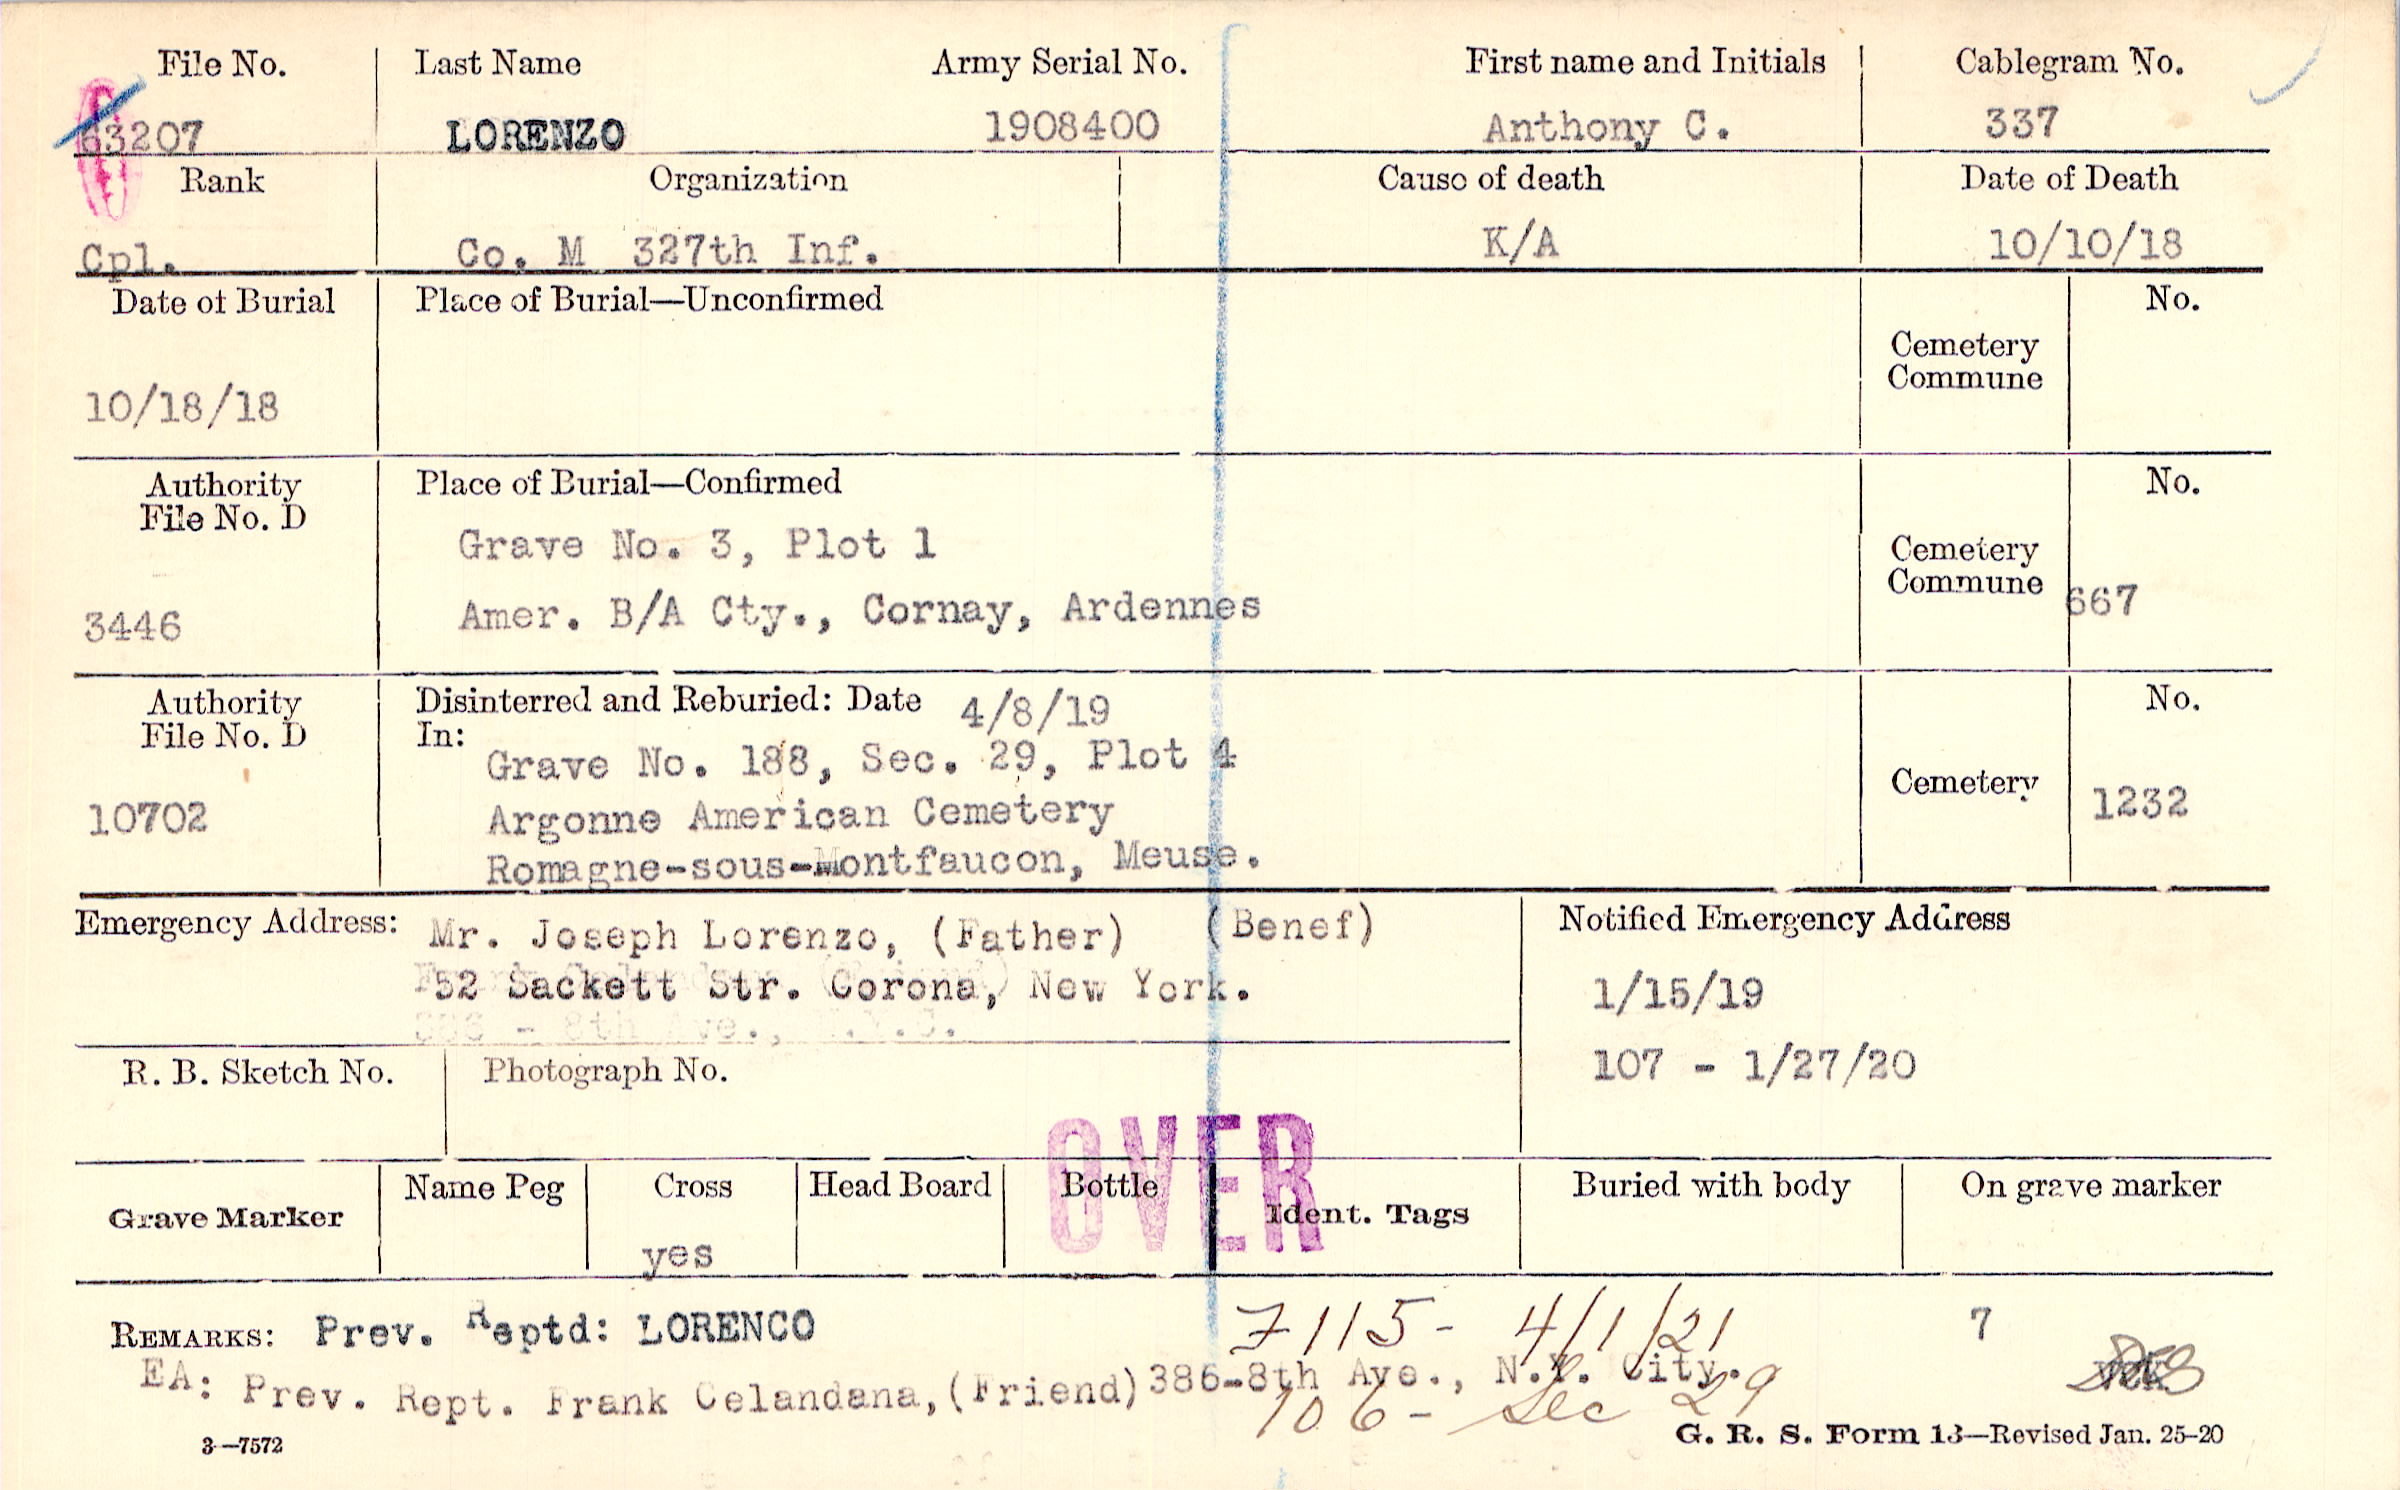 File No. Last Name Army Serial No. First name and Initials Cablegram No.
63207 LORENZO 1908400 Anthony C. 337
Rank Organization Cause of death Date of Death
Cpl. Co. M 327th Inf. K/A 10/10/18
Date of Burial Place of Burial—Unconfirmed No.
Cemetery
Commune
10/18/18
Authority Place of Burial—Confirmed No.
File No. D
Grave No. 3, Plot 1
Cemetery
Commune 667
3446 Amer. B/A Cty., Cornay, Ardennes
Authority Disinterred and Reburied: Date 4/8/19 No.
File No. D In:
Grave No. 188, Sec. 29, Plot 4
Cemetery 1232
10702 Argonne American Cemetery
Romagne-sous-Montfaucon, Meuse.
Emergency Address: Mr. Joseph Lorenzo, (Father) (Benef) Notified Emergency Address
52 Sackett Str. Corona, New York. 1/15/19
8th Ave.,
107 - 1/27/20
R. B. Sketch No. Photograph No.
OVER
Grave Marker Name Peg Cross Head Board Bottle Ident. Tags Buried with body On grave marker
yes
REMARKS: Prev. Reptd: LORENCO 7115- 4/1/21 7
EA: Prev. Rept. Frank Celandana, (Friend) 386-8th Ave., N.Y. City.
106- Sec 29
3—7572 G. R. S. Form 13—Revised Jan. 25-20